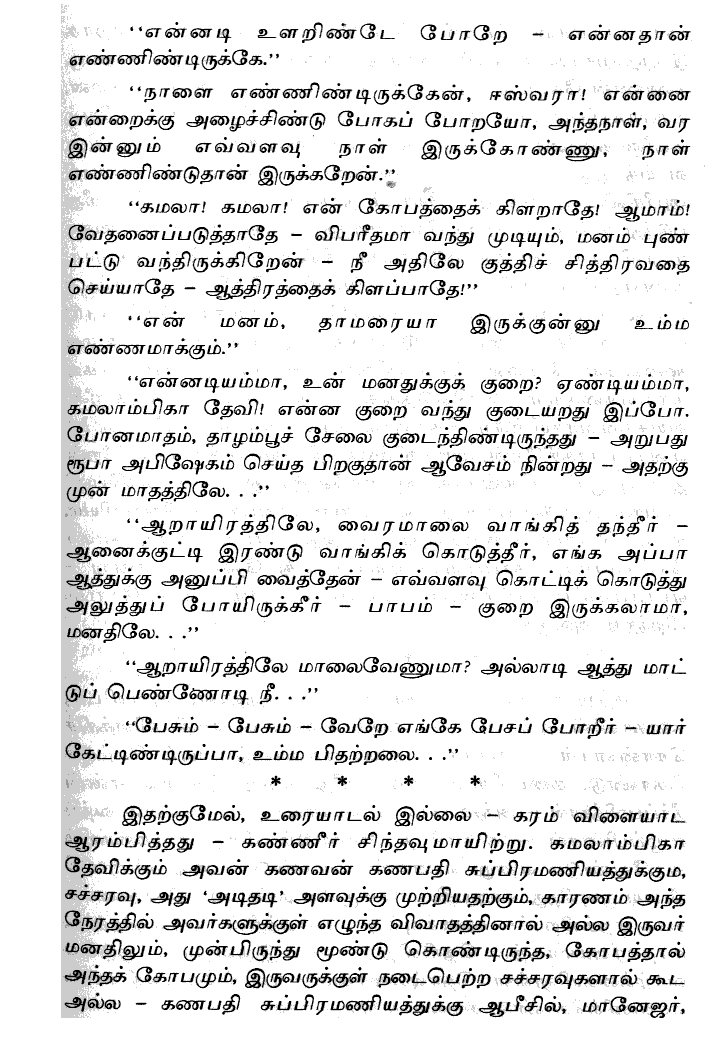 ‘‘என்னடி உளறிண்டே போறே – என்னதான்
எண்ணிண்டிருக்கே.’’
‘‘நாளை எண்ணிண்டிருக்கேன், ஈஸ்வரா! என்னை
என்றைக்கு அழைச்சிண்டு போகப் போறயோ, அந்தநாள், வர
இன்னும் எவ்வளவு நாள் இருக்கோண்ணு, நாள்
எண்ணிண்டுதான் இருக்கறேன்.’’
‘‘கமலா! கமலா! என் கோபத்தைக் கிளறாதே! ஆமாம்!
வேதனைப்படுத்தாதே – விபரீதமா வந்து முடியும், மனம் புண்
பட்டு வந்திருக்கிறேன் – நீ அதிலே குத்திச் சித்திரவதை
செய்யாதே – ஆத்திரத்தைக் கிளப்பாதே!’’
‘‘என் மனம், தாமரையா இருக்குன்னு உம்ம
எண்ணமாக்கும்.’’
‘‘என்னடியம்மா, உன் மனதுக்குக் குறை? ஏண்டியம்மா,
கமலாம்பிகா தேவி! என்ன குறை வந்து குடையறது இப்போ.
போனமாதம், தாழம்பூச் சேலை குடைந்திண்டிருந்தது – அறுபது
ரூபா அபிஷேகம் செய்த பிறகுதான் ஆவேசம் நின்றது – அதற்கு
முன் மாதத்திலே. . .’’
‘‘ஆறாயிரத்திலே, வைரமாலை வாங்கித் தந்தீர் –
ஆனைக்குட்டி இரண்டு வாங்கிக் கொடுத்தீர், எங்க அப்பா
ஆத்துக்கு அனுப்பி வைத்தேன் – எவ்வளவு கொட்டிக் கொடுத்து
அலுத்துப் போயிருக்கீர் – பாபம் – குறை இருக்கலாமா,
மனதிலே. . .’’
‘‘ஆறாயிரத்திலே மாலைவேணுமா? அல்லாடி ஆத்து மாட்
டுப் பெண்ணோடி நீ. . .’’
‘‘பேசும் – பேசும் – வேறே எங்கே பேசப் போறீர் – யார்
கேட்டிண்டிருப்பா, உம்ம பிதற்றலை. . .’’
* * * *
இதற்குமேல், உரையாடல் இல்லை – கரம் விளையாட
ஆரம்பித்தது – கண்ணீர் சிந்தவுமாயிற்று. கமலாம்பிகா
தேவிக்கும் அவன் கணவன் கணபதி சுப்பிரமணியத்துக்கும,
சச்சரவு, அது ‘அடிதடி’ அளவுக்கு முற்றியதற்கும், காரணம் அந்த
நேரத்தில் அவர்களுக்குள் எழுந்த விவாதத்தினால் அல்ல இருவர்
மனதிலும், முன்பிருந்து மூண்டு கொண்டிருந்த, கோபத்தால்
அந்தக் கோபமும், இருவருக்குள் நடைபெற்ற சச்சரவுகளால் கூட
அல்ல – கணபதி சுப்பிரமணியத்துக்கு ஆபீசில், மானேஜர்,